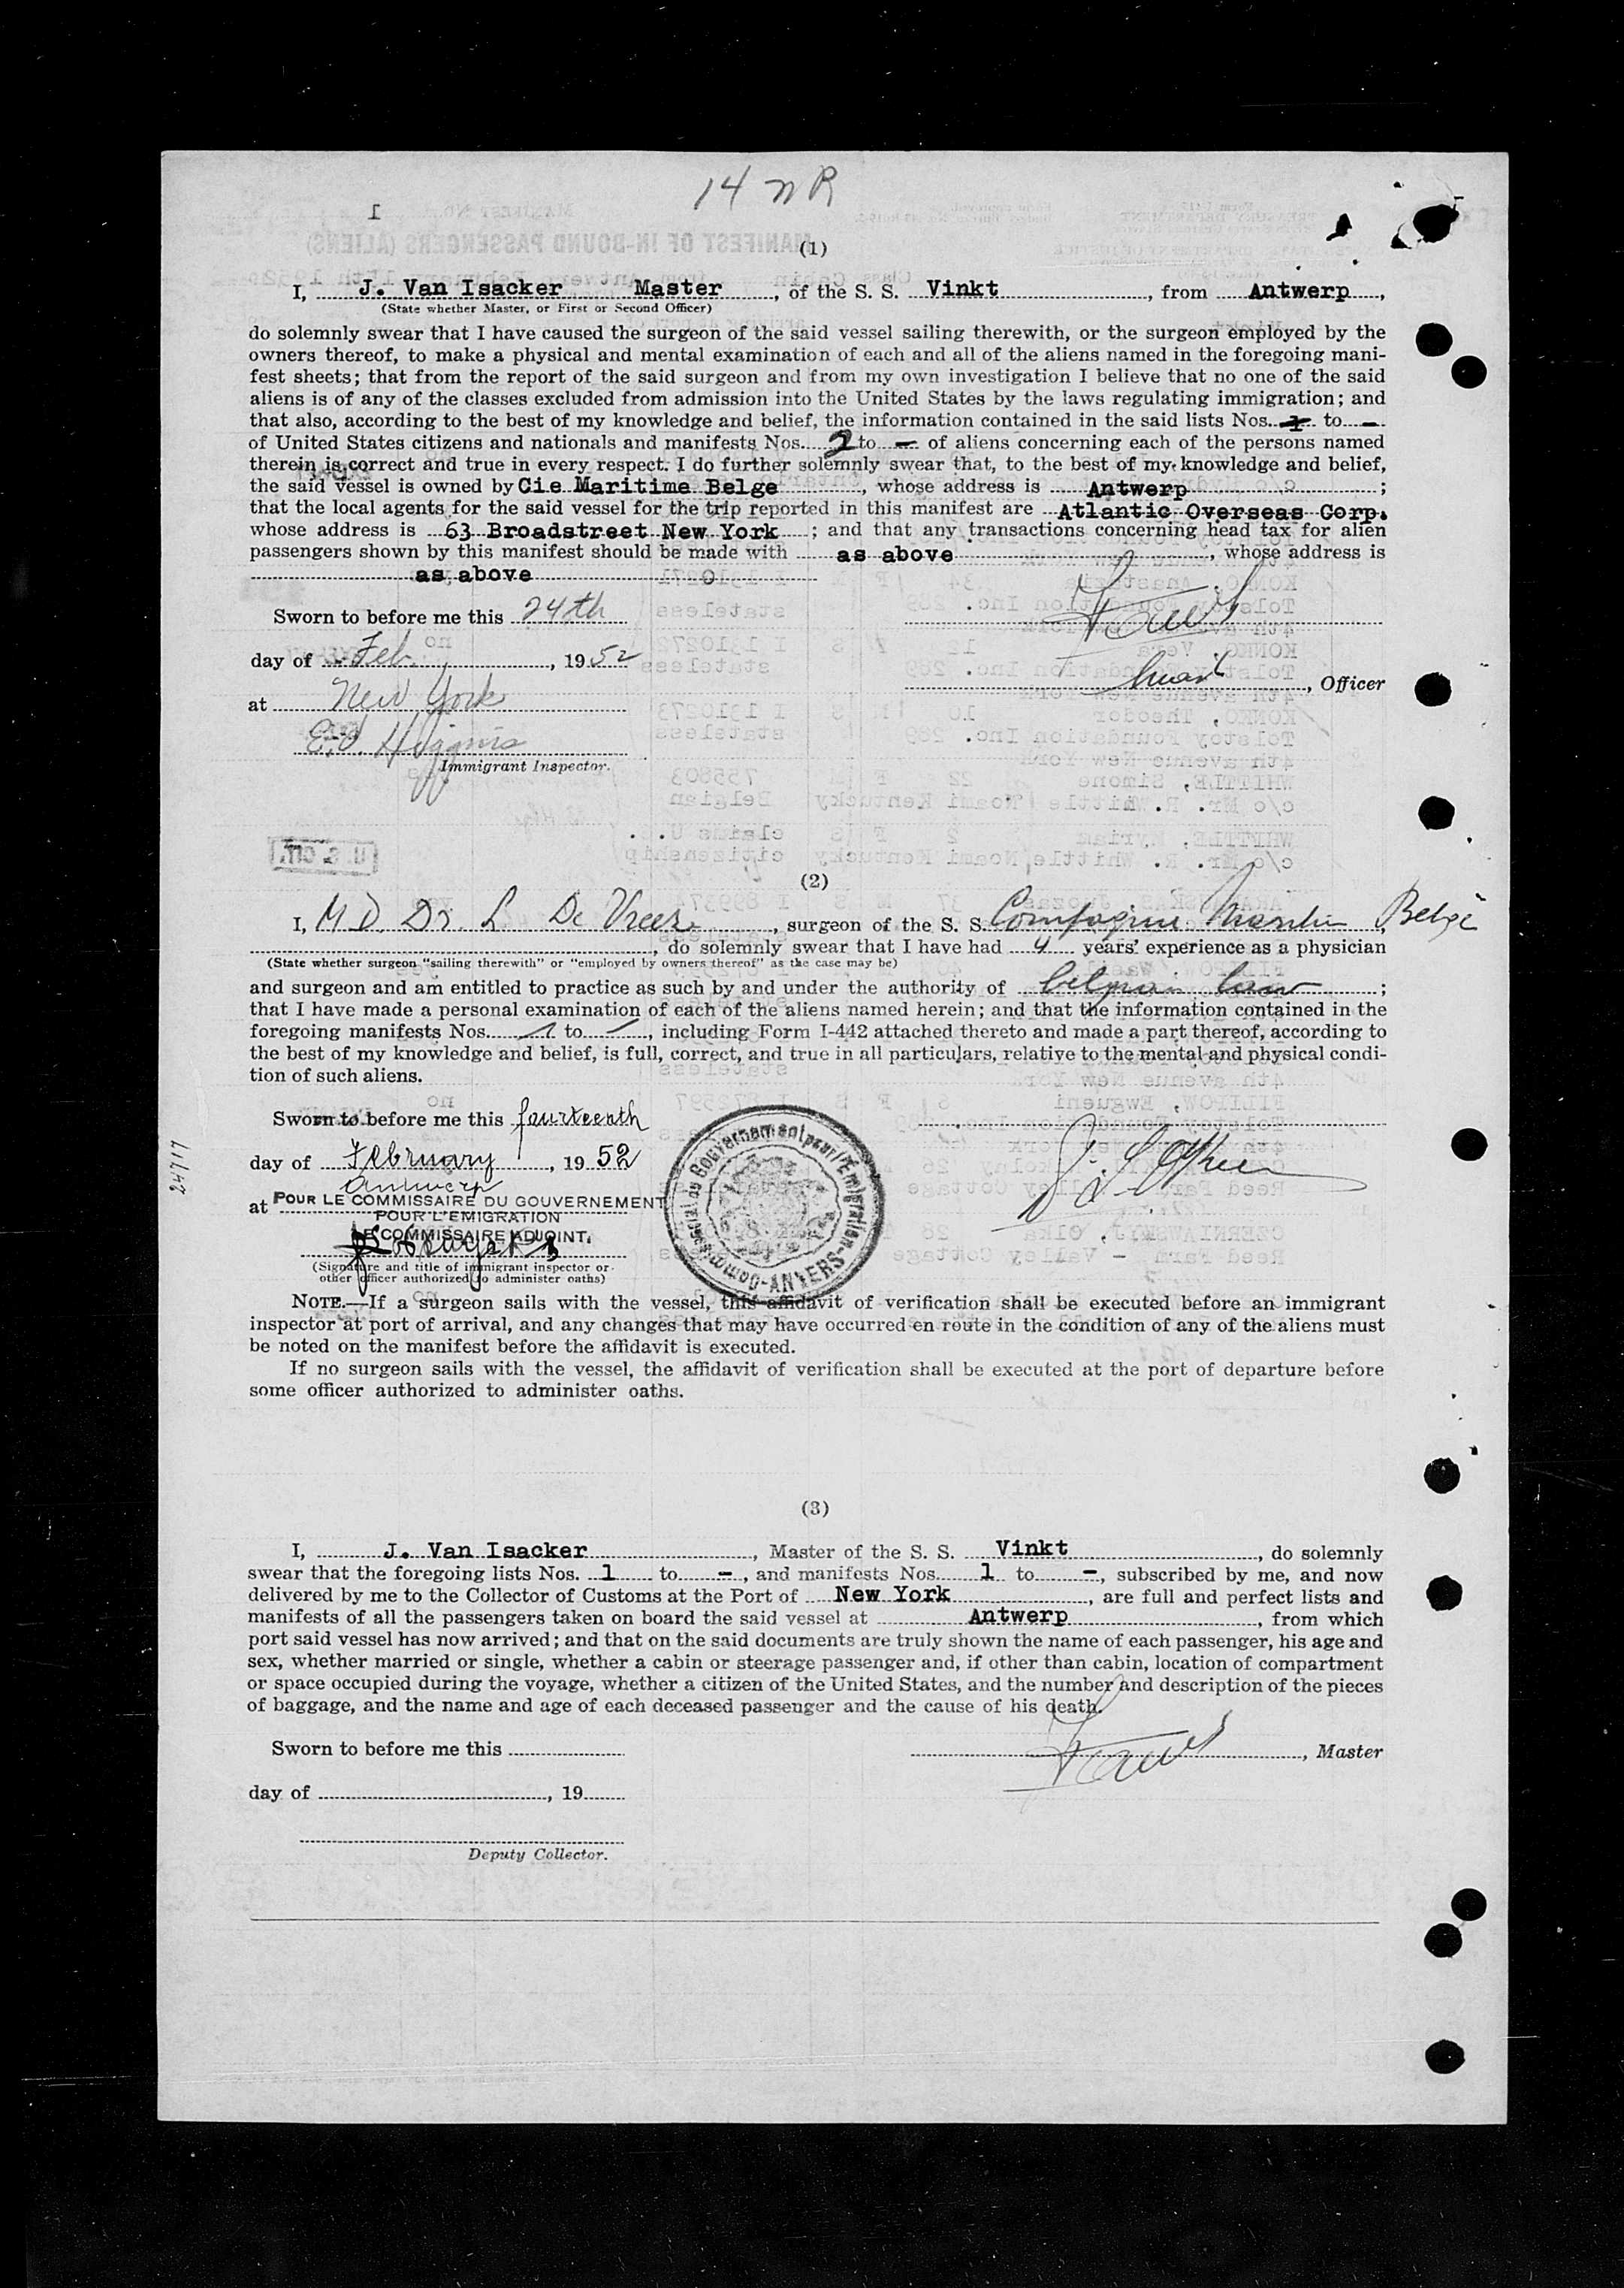 14 NR
(1)
I, J. Van Isacker Master, of the S. S. Vinkt, from Antwerp,
(State whether Master, or First or Second Officer)
do solemnly swear that I have caused the surgeon of the said vessel sailing therewith, or the surgeon employed by the
owners thereof, to make a physical and mental examination of each and all of the aliens named in the foregoing mani-
fest sheets; that from the report of the said surgeon and from my own investigation I believe that no one of the said
aliens is of any of the classes excluded from admission into the United States by the laws regulating immigration; and
that also, according to the best of my knowledge and belief, the information contained in the said lists Nos. 1 to -
of United States citizens and nationals and manifests Nos. 2 to - of aliens concerning each of the persons named
therein is correct and true in every respect. I do further solemnly swear that, to the best of my knowledge and belief,
the said vessel is owned by Cie Maritime Belge, whose address is Antwerp;
that the local agents for the said vessel for the trip reported in this manifest are Atlantic Overseas Corp.
whose address is 63 Broadstreet New York; and that any transactions concerning head tax for alien
passengers shown by this manifest should be made with as above, whose address is
as above
Sworn to before me this 24th
day of Feb, 1952
, Officer
at New York
Immigrant Inspector.
(2)
I, M D. Dr. L. De Vreese, surgeon of the S. S. Compagnie Maritime Belge
, do solemnly swear that I have had 4 years' experience as a physician
(State whether surgeon "sailing therewith" or "employed by owners thereof" as the case may be)
and surgeon and am entitled to practice as such by and under the authority of belgian law;
that I have made a personal examination of each of the aliens named herein; and that the information contained in the
foregoing manifests Nos. 1 to -, including Form I-442 attached thereto and made a part thereof, according to
the best of my knowledge and belief, is full, correct, and true in all particulars, relative to the mental and physical condi-
tion of such aliens.
Sworn to before me this fourteenth
day of February, 1952
Antwerp
at POUR LE COMMISSAIRE DU GOUVERNEMENT
POUR L'EMIGRATION
LE COMMISSAIRE ADJOINT.
(Signature and title of immigrant inspector or
other officer authorized to administer oaths)
Commissariat du Gouvernement pour l'Emigration-ANVERS-
24717
NOTE.—If a surgeon sails with the vessel, this affidavit of verification shall be executed before an immigrant
inspector at port of arrival, and any changes that may have occurred en route in the condition of any of the aliens must
be noted on the manifest before the affidavit is executed.
If no surgeon sails with the vessel, the affidavit of verification shall be executed at the port of departure before
some officer authorized to administer oaths.
(3)
I, J. Van Isacker, Master of the S. S. Vinkt, do solemnly
swear that the foregoing lists Nos. 1 to -, and manifests Nos. 1 to -, subscribed by me, and now
delivered by me to the Collector of Customs at the Port of New York, are full and perfect lists and
manifests of all the passengers taken on board the said vessel at Antwerp, from which
port said vessel has now arrived; and that on the said documents are truly shown the name of each passenger, his age and
sex, whether married or single, whether a cabin or steerage passenger and, if other than cabin, location of compartment
or space occupied during the voyage, whether a citizen of the United States, and the number and description of the pieces
of baggage, and the name and age of each deceased passenger and the cause of his death.
Sworn to before me this
, Master
day of , 19
Deputy Collector.